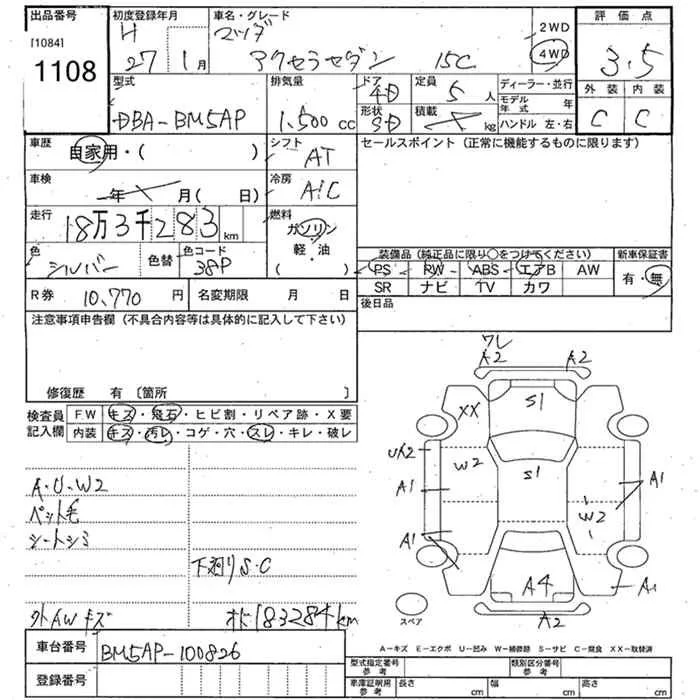 出品番号 初度登録年月 車名・グレード 評価点
[1084] H マツダ 2WD
1108 27 1月 アクセラセダン 15C 4WD 3.5
型式 排気量 ドア 4D 定員 5人 ディーラー・並行 外装 内装
DBA-BM5AP 1,500cc 形状 SD 積載 kg モデル年式 年 C C
ハンドル 左・右
車歴 自家用・( ) シフト AT セールスポイント(正常に機能するものに限ります)
車検 年 月(日) 冷房 A/C
走行 18万3千283km 燃料 ガソリン
軽・油
( )
色 シルバー 色替 色コード 38P
装備品(純正品に限り○をつけてください) 新車保証書
PS RW ABS エアB AW 有・無
SR ナビ TV カワ
R券 10,770円 名変期限 月 日 後日品
注意事項申告欄(不具合内容等は具体的に記入して下さい)
修復歴 有 〔箇所 〕
検査員記入欄 FW キズ・飛石・ヒビ割・リペア跡・X要
内装 キズ・汚レ・コゲ・穴・スレ・キレ・破レ
A・U・W2
ペット毛
シートシミ
下廻りS・C
外AWキズ オド183284km
ワレ
A2 A2
XX S1
UX2 W2 S1
A1 A1
W2
A1
A4 A1
A2
スペア
車台番号 BM5AP-100826
登録番号
A-キズ E-エクボ U-凹み W-補修跡 S-サビ C-腐食 XX-取替済
型式指定番号 参考 類別区分番号 参考
車庫証明用 参考 長さ cm 幅 cm 高さ cm